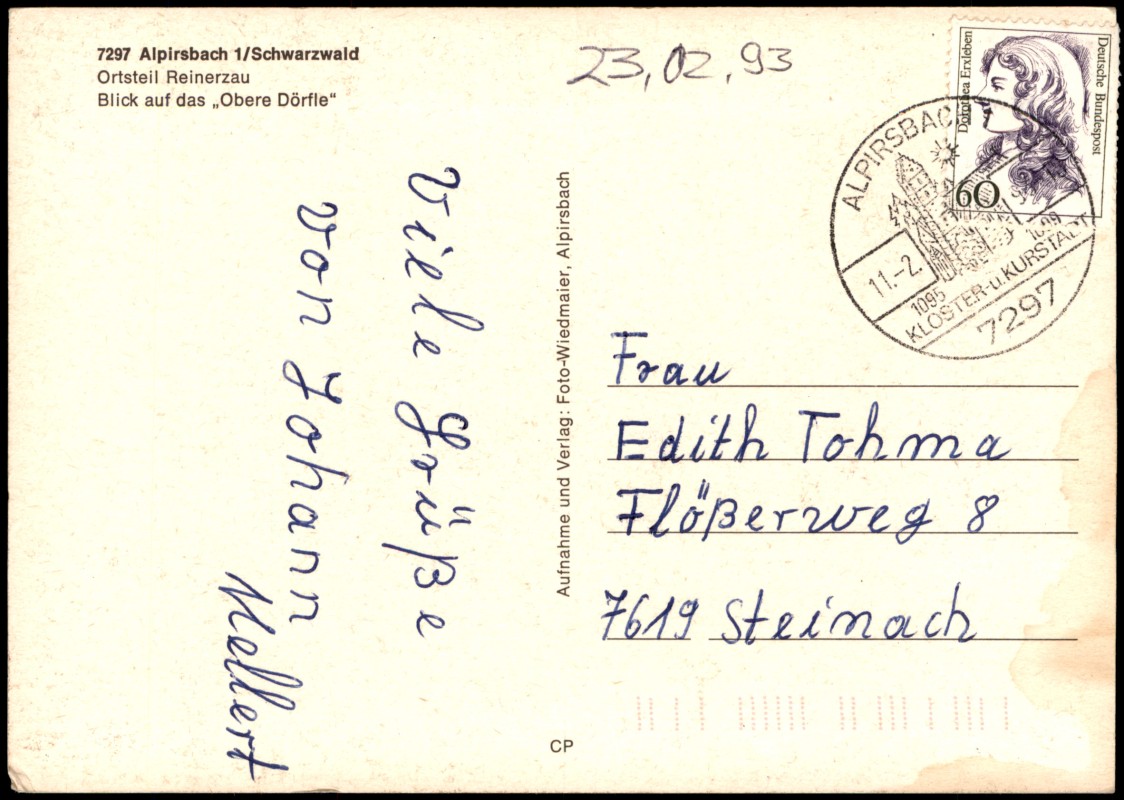 7297 Alpirsbach 1/Schwarzwald
Ortsteil Reinerzau
Blick auf das „Obere Dörfle“
23.02.93
Deutsche Bundespost
Dorothea Erxleben
60
ALPIRSBACH
11.-2.
1095
1099
KLOSTER-u.KURSTADT
7297
Viele Grüße
von Johann
Mellert
Aufnahme und Verlag: Foto-Wiedmaier, Alpirsbach
Frau
Edith Tohma
Flößerweg 8
7619 Steinach
CP